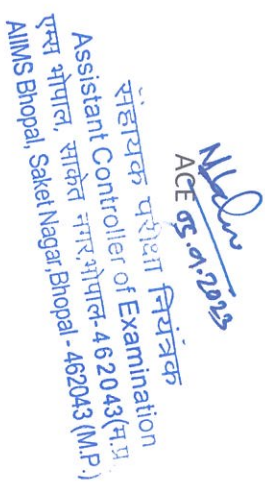 ACE 05.01.2023
सहायक परीक्षा नियंत्रक
Assistant Controller of Examination
एम्स भोपाल, साकेत नगर, भोपाल-462043(म.प्र.
AIIMS Bhopal, Saket Nagar, Bhopal - 462043 (M.P.)